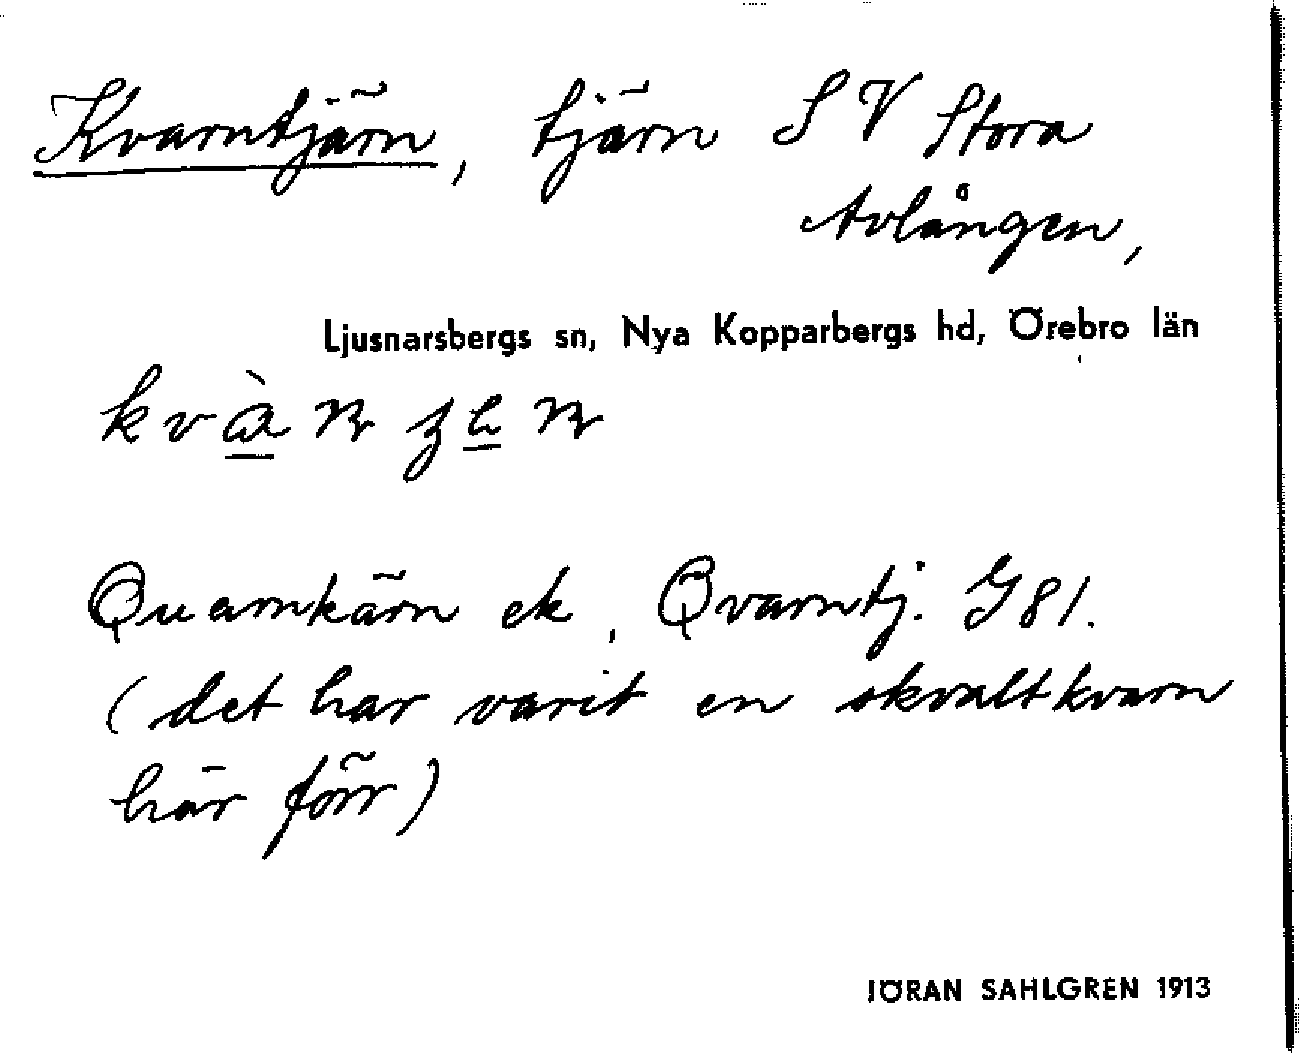 Kvarntjärn, tjärn SV Stora
Avlången,
Ljusnarsbergs sn, Nya Kopparbergs hd, Örebro län
Quarnkärn ek, Qvarntj. G 81.
(det har varit en skvaltkvarn
här förr)
JÖRAN SAHLGREN 1913